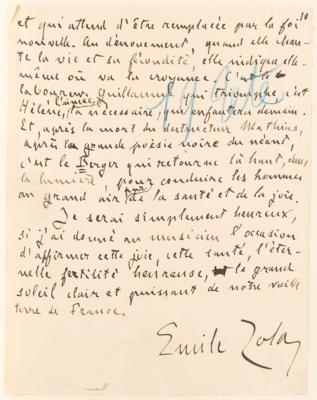 10
et qui attend d'être remplacée par la foi
nouvelle. Au dénouement, quand elle chan-
te la vie et sa fécondité, elle indique elle-
même où va la croyance. C'est le
laboureur Guillaume qui triomphe, c'est
Hélène, l'aimée, la nécessaire, qui enfantera demain.
Et, après la mort du destructeur Mathias,
après la grande poésie noire du néant,
c'est le Berger qui retourne là haut, dans
la lumière, pour conduire les hommes
au grand air pur de la santé et de la joie.
Je serai simplement heureux,
si j'ai donné au musicien l'occasion
d'affirmer cette joie, cette santé, l'éter-
nelle fertilité heureuse, la grand
soleil clair et puissant de notre vieille
terre de France.
Emile Zola